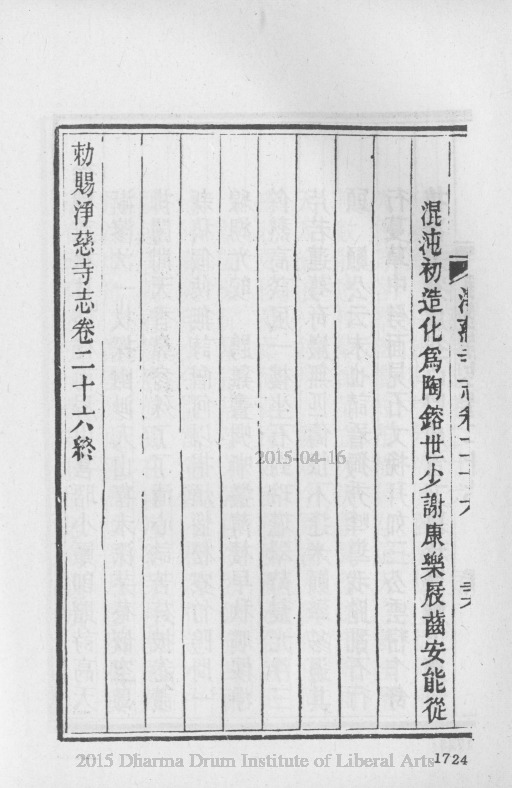 淨慈寺志卷二十六
混沌初造化爲陶鎔世少謝康樂屐齒安能從
勅賜淨慈寺志卷二十六終
2015-04-16
2015 Dharma Drum Institute of Liberal Arts
1724